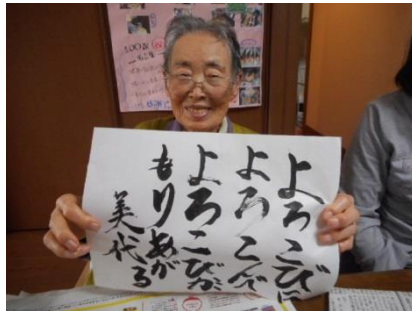 よろこびに
よろこんで
よろこびが
もりあがる
美代
100歳